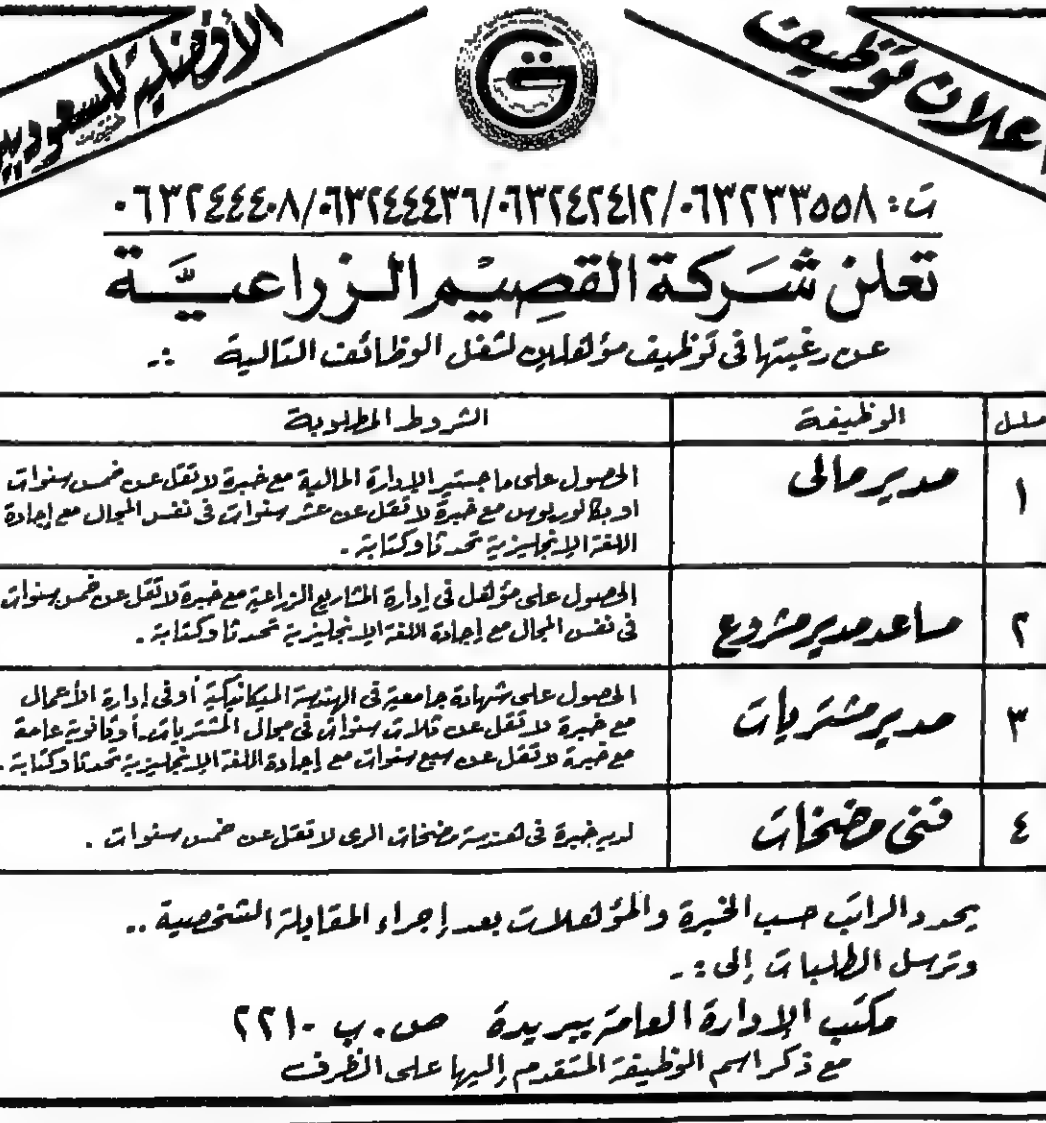 إعلان توظيف
الأفضلية للسعوديين
ت: ٠٦٣٢٣٣٥٥٨/٠٦٣٢٤٢٤١٢/٠٦٣٢٤٤٤٣٦/٠٦٣٢٤٤٤٠٨
تعلن شركة القصيم الزراعية
عن رغبتها في توظيف مؤهلين لشغل الوظائف التالية :ـ
مسلسل الوظيفة الشروط المطلوبة
١ مدير مالى
الحصول على ماجستير الإدارة المالية مع خبرة لاتقل عن خمس سنوات
او بكالوريوس مع خبرة لاتقل عن عشر سنوات فى نفس المجال مع إجادة
اللغة الإنجليزية تحدثا وكتابة .
٢ مساعد مدير مشروع
الحصول على مؤهل فى إدارة المشاريع الزراعية مع خبرة لاتقل عن خمس سنوات
فى نفس المجال مع إجادة اللغة الإنجليزية تحدثا وكتابة .
٣ مدير مشتريات
الحصول على شهادة جامعية فى الهندسة الميكانيكية أوفى إدارة الأعمال
مع خبرة لاتقل عن ثلاث سنوات فى مجال المشتريات أو ثانوية عامة
مع خبرة لاتقل عن سبع سنوات مع إجادة اللغة الإنجليزية تحدثا وكتابة .
٤ فنى مضخات
لديه خبرة فى هندسة مضخات الرى لاتقل عن خمس سنوات .
يحدد الراتب حسب الخبرة والمؤهلات بعد إجراء المقابلة الشخصية ..
وترسل الطلبات إلى :ـ
مكتب الإدارة العامة ببريدة ص.ب ٢٢١٠
مع ذكر اسم الوظيفة المتقدم إليها على الظرف